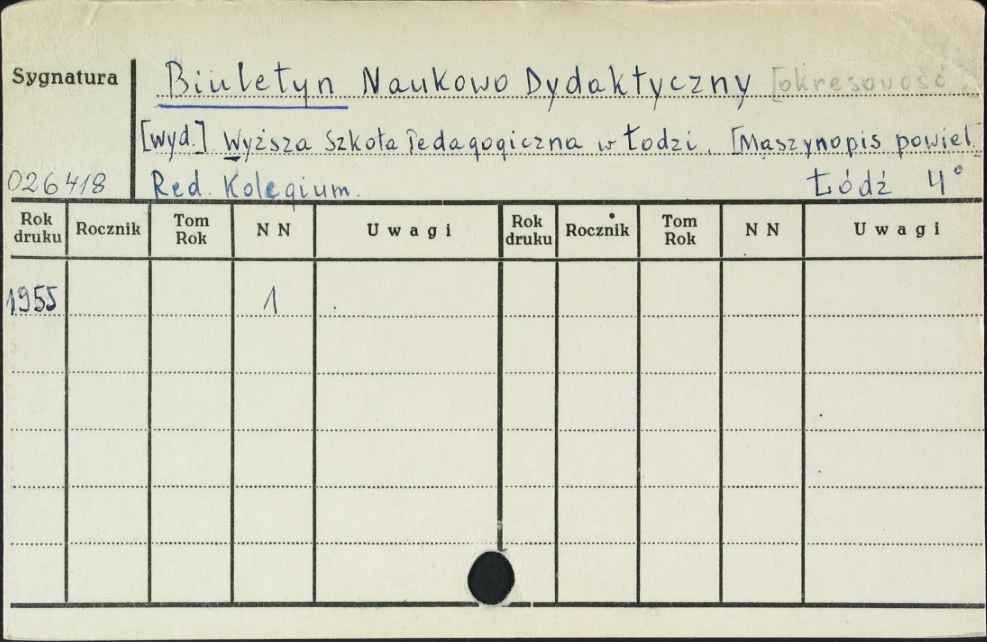 Sygnatura Biuletyn Naukowo Dydaktyczny [okresowość
[wyd.] Wyższa Szkoła Pedagogiczna w Łodzi. [Maszynopis powiel.
026418 Red. Kolegium. Łódź 4°
Rok druku Rocznik Tom Rok N N Uwagi Rok druku Rocznik Tom Rok N N Uwagi
1955 1